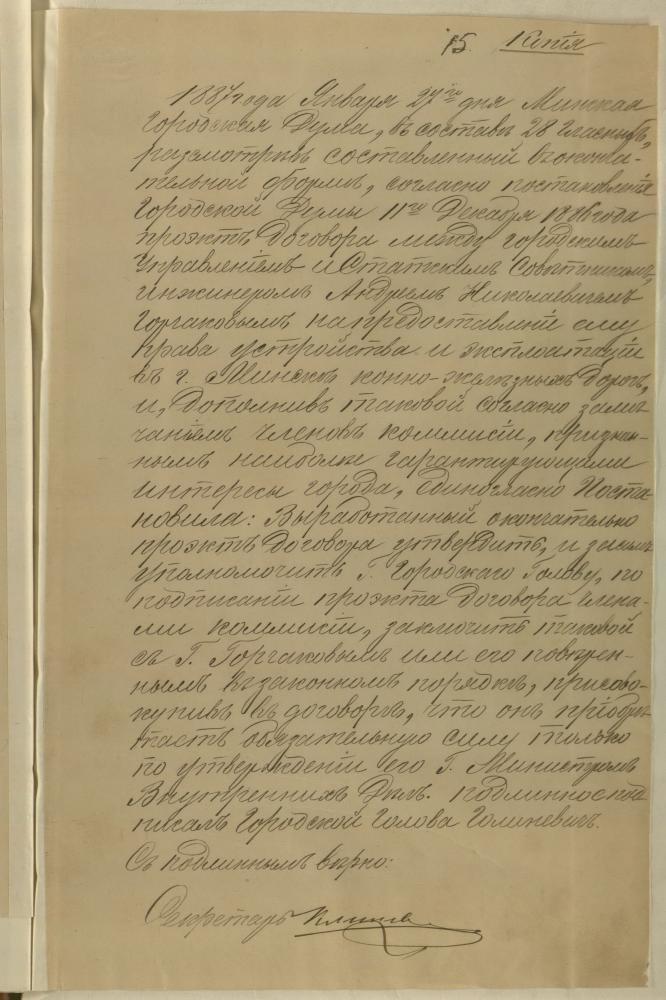 15. Копія
1887 года Января 27го дня Минская
Городская Дума, въ составѣ 28 гласныхъ,
разсмотрѣвъ составленный въ оконча-
тельной формѣ, согласно постановленія
Городской Думы 11го Декабря 1886 года
проэктъ договора между городскимъ
Управленіемъ и Статскимъ Совѣтникомъ,
инженеромъ Андреемъ Николаевичемъ
Горчаковымъ на предоставленіе ему
права устройства и эксплоатаціи
въ г. Минскѣ конно-желѣзныхъ дорогъ,
и, дополнивъ таковой согласно замѣ-
чаніямъ членовъ коммисіи, признан-
нымъ наиболѣе гарантирующими
интересы города, единогласно Поста-
новила: Выработанный окончательно
проэктъ договора утвердить, и затѣмъ
уполномочить Г. Городскаго Голову, по
подписаніи проэкта договора члена-
ми коммисіи, заключить таковой
съ Г. Горчаковымъ или его повѣрен-
нымъ въ законномъ порядкѣ, присово-
купивъ въ договорѣ, что онъ пріобрѣ-
таетъ обязательную силу только
по утвержденіи его Г. Министромъ
Внутреннихъ Дѣлъ. Подлинное под-
писалъ Городской Голова Голиневичъ.
Съ подлиннымъ вѣрно:
Секретарь